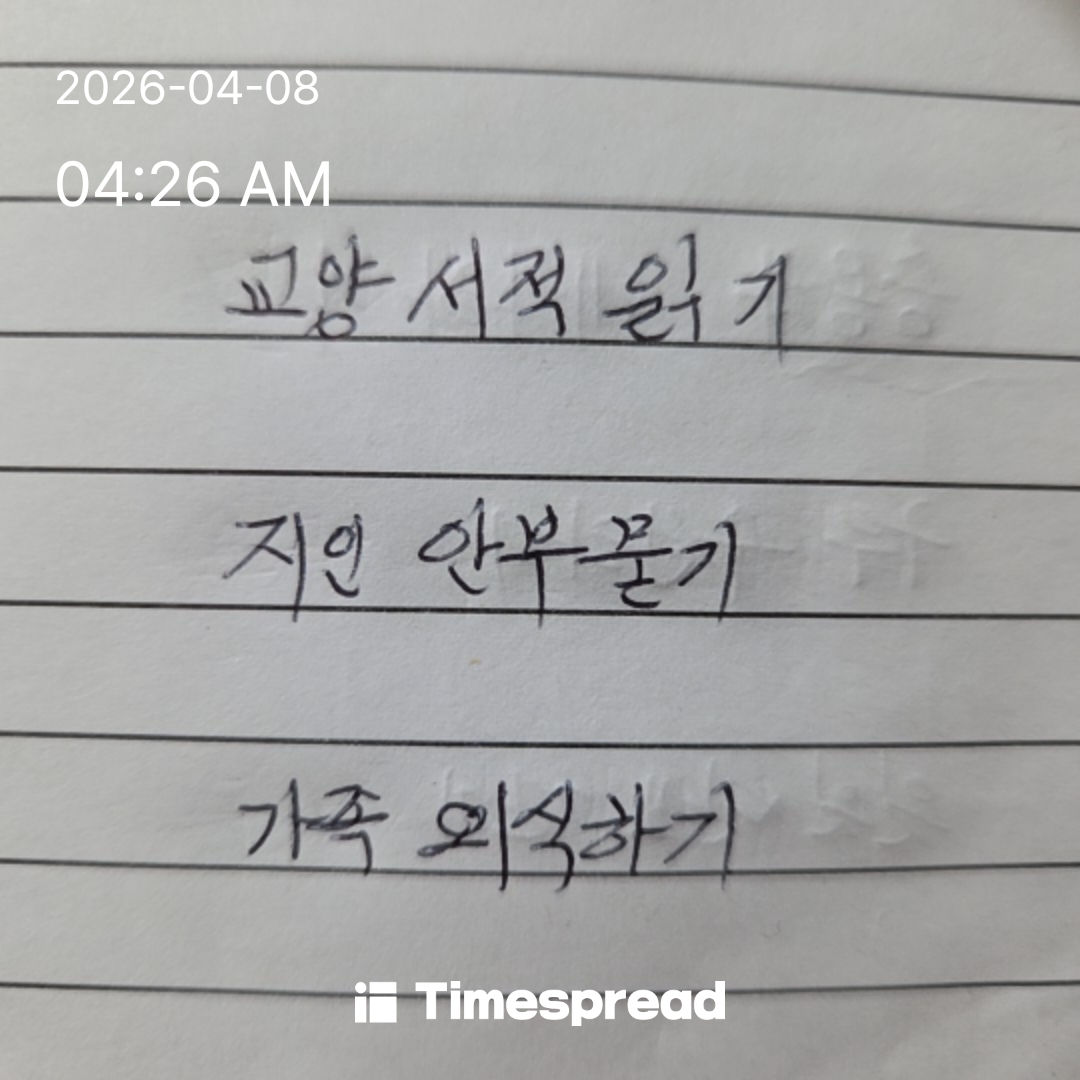 2026-04-08
04:26 AM
교양 서적 읽기
지인 안부묻기
가족 외식하기
Timespread